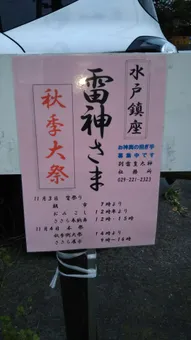 水戸鎮座
雷神さま
秋季大祭
お神輿の担ぎ手
募集中です
別雷皇太神
社務所
029-221-2323
11月3日 宵祭り
7時より
12時半より
12時・13時
11月4日 本祭
秋季例大祭
14時より
9時~16時